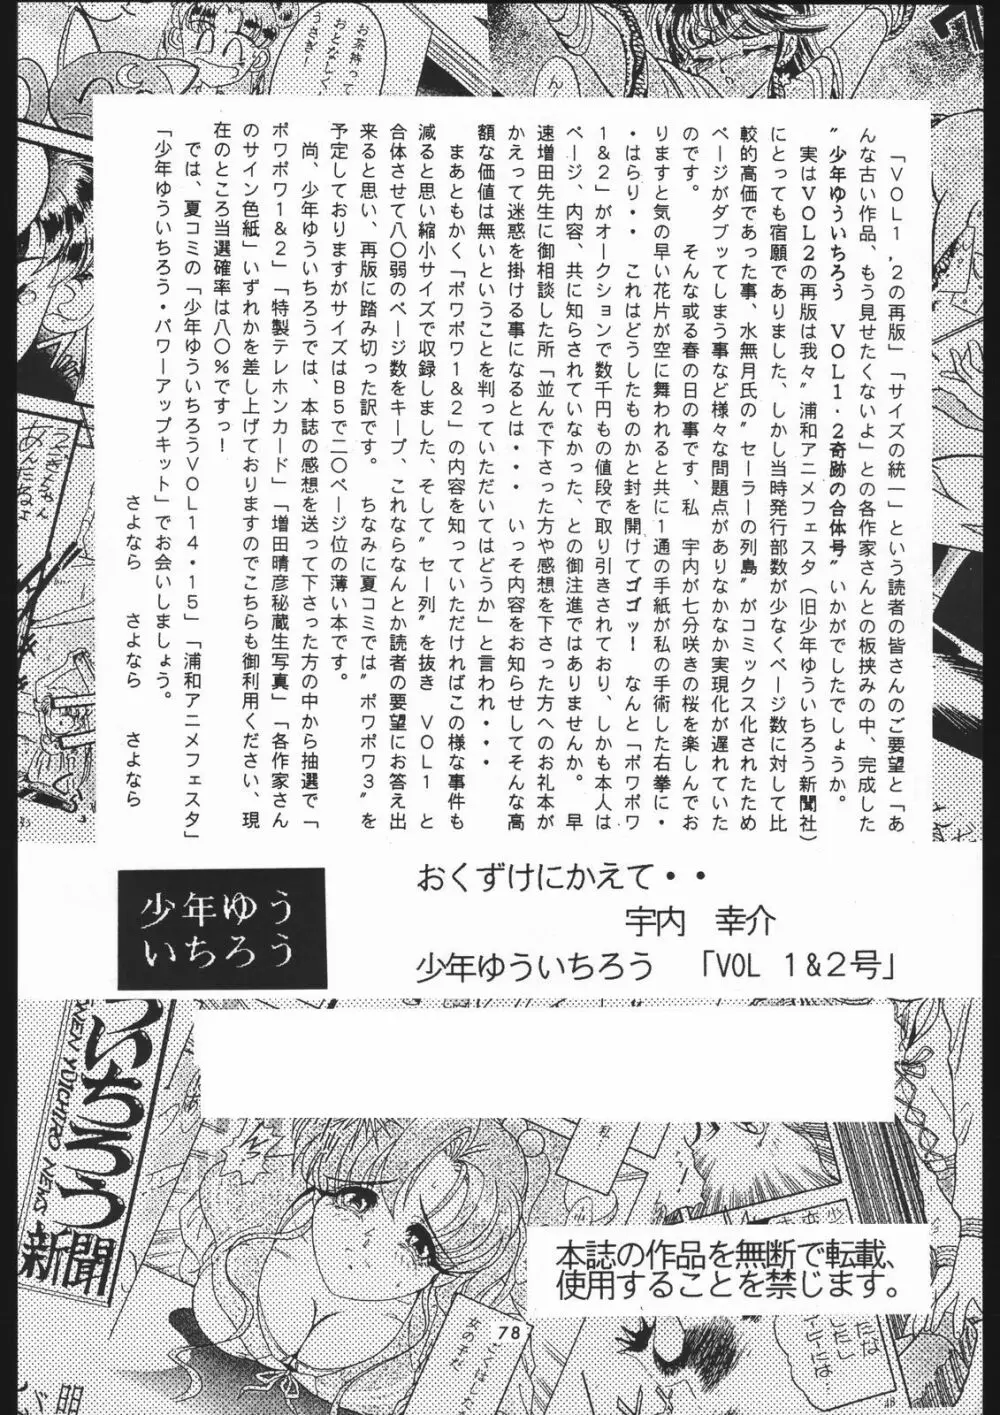 「VOL1，2の再版」「サイズの統一」という読者の皆さんのご要望と「あ
んな古い作品、もう見せたくないよ」との各作家さんとの板挟みの中、完成した
〝少年ゆういちろう　VOL1・2奇跡の合体号〟いかがでしたでしょうか。
実はVOL2の再版は我々〝浦和アニメフェスタ（旧少年ゆういちろう新聞社）
にとっても宿願でありました、しかし当時発行部数が少なくページ数に対して比
較的高価であった事、水無月氏の〝セーラーの列島〟がコミックス化されたため
ページがダブッてしまう事など様々な問題点がありなかなか実現化が遅れていた
のです。　そんな或る春の日の事です、私　宇内が七分咲きの桜を楽しんでお
りますと気の早い花片が空に舞われると共に1通の手紙が私の手術した右拳に・
・はらり・・　これはどうしたものかと封を開けてゴゴッ！　なんと「ポワポワ
1&2」がオークションで数千円もの値段で取り引きされており、しかも本人は
ページ、内容、共に知らされていなかった、との御注進ではありませんか。　早
速増田先生に御相談した所「並んで下さった方や感想を下さった方へのお礼本が
かえって迷惑を掛ける事になるとは・・・　いっそ内容をお知らせしてそんな高
額な価値は無いということを判っていただいてはどうか」と言われ・・・
まあともかく「ポワポワ1&2」の内容を知っていただければこの様な事件も
減ると思い縮小サイズで収録しました、そして〝セー列〟を抜き　VOL1　と
合体させて八〇弱のページ数をキープ、これならなんとか読者の要望にお答え出
来ると思い、再版に踏み切った訳です。　ちなみに夏コミでは〝ポワポワ3〟を
予定しておりますがサイズはB5で二〇ページ位の薄い本です。
尚、少年ゆういちろうでは、本誌の感想を送って下さった方の中から抽選で「
ポワポワ1&2」「特製テレホンカード」「増田晴彦秘蔵生写真」「各作家さん
のサイン色紙」いずれかを差し上げておりますのでこちらも御利用ください、現
在のところ当選確率は八〇％ですっ！
では、夏コミの「少年ゆういちろうVOL14・15」「浦和アニメフェスタ」
「少年ゆういちろう・パワーアップキット」でお会いしましょう。
さよなら　さよなら　さよなら
おくずけにかえて・・
宇内　幸介
少年ゆういちろう　「VOL 1&2号」
少年ゆう
いちろう
いちろう
NEN YUICHIRO NEWS
新聞
本誌の作品を無断で転載、
使用することを禁じます。
78
お茶持って
おとなしく
うさぎ！
女の子だ